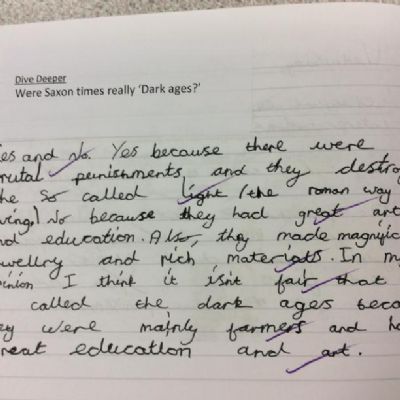 Dive Deeper
Were Saxon times really 'Dark ages?'
es and No. Yes because there were
rutal punishments, and they destroy
he so called light (the roman way
iving) No because they had great art
nd education. Also, they made magnific
ewellry and rich materials. In my
inion I think it isnt fair that
called the dark ages beca
ey were mainly farmers and ha
reat education and art.